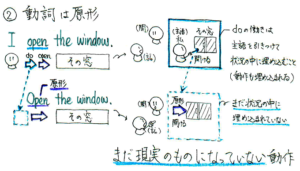 ② 動詞は原形
I open the window.
do open その窓
原形
Open the window.
その窓
(聞)
(私)
(主語)
私 その窓
開始
doの働きは
主語を引きつけて
状況の中に埋め込むこと
(動作も埋め込まれる)
(聞)
(私)
原形
開始
まだ状況の中に
埋め込まれていない
まだ現実のものになっていない動作